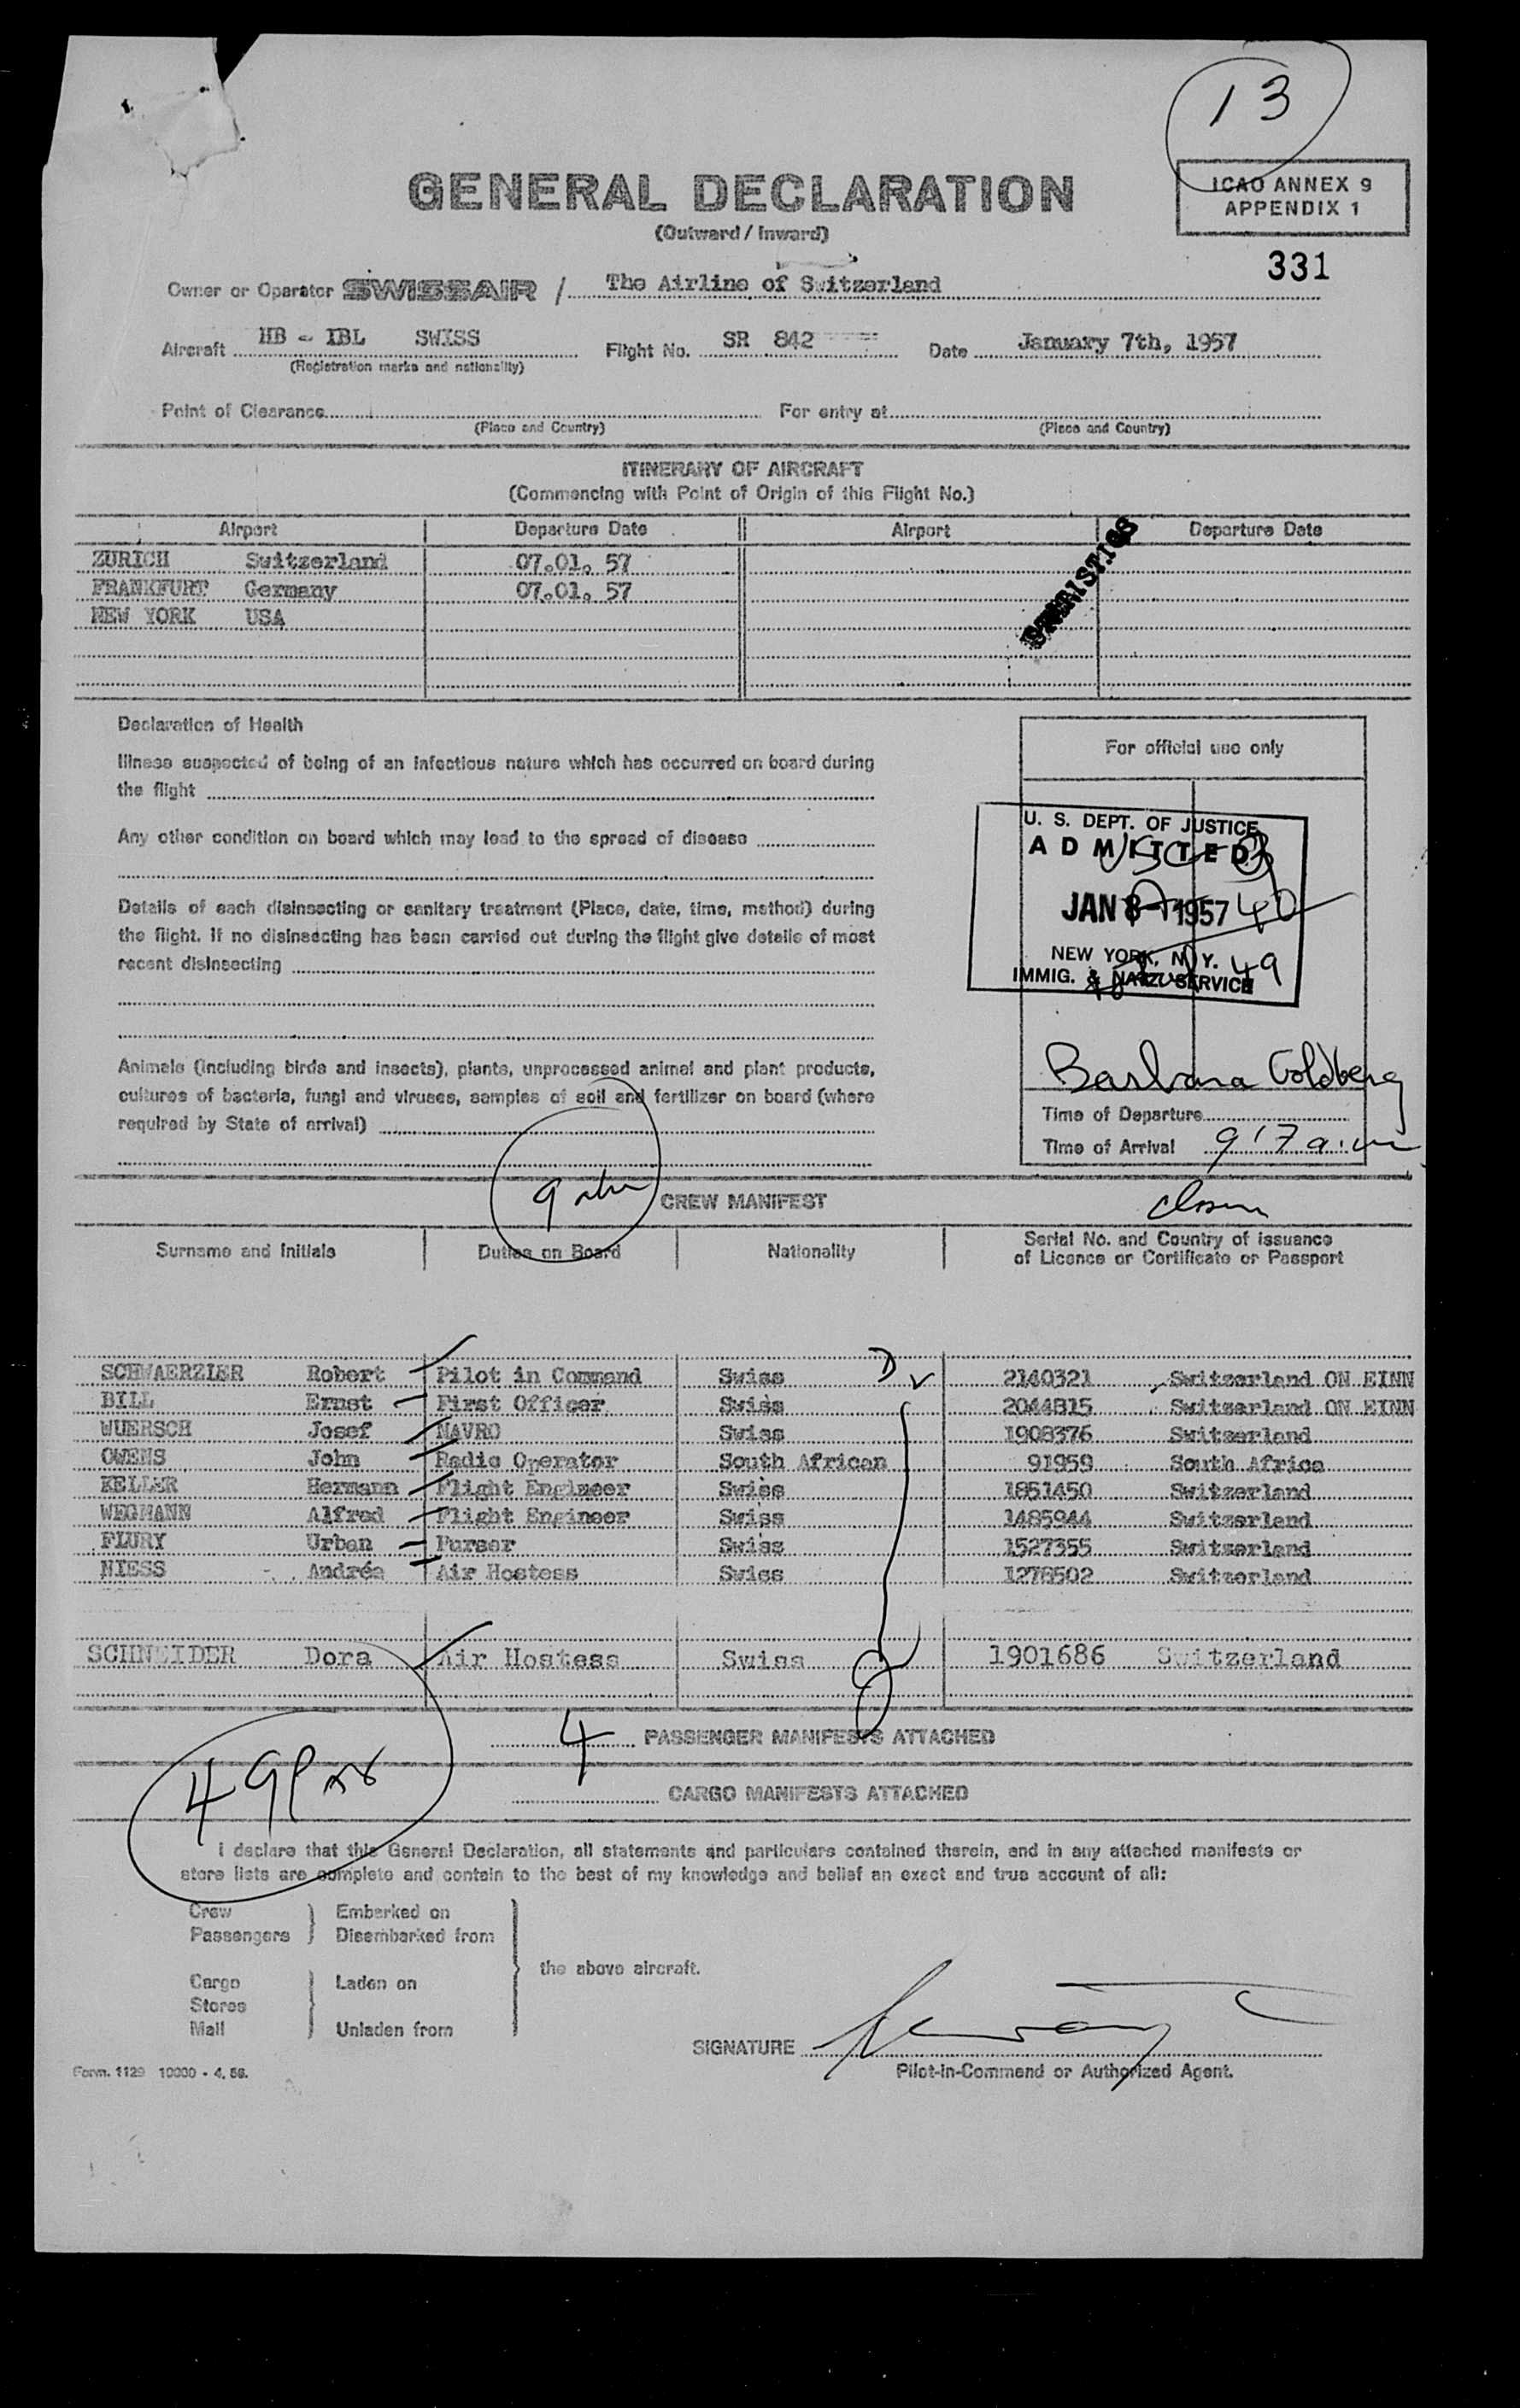 13
GENERAL DECLARATION
(Outward / Inward)
ICAO ANNEX 9
APPENDIX 1
331
Owner or Operator SWISSAIR / The Airline of Switzerland
Aircraft HB - IBL SWISS Flight No. SR 842 Date January 7th, 1957
(Registration marks and nationality)
Point of Clearance For entry at
(Place and Country) (Place and Country)
ITINERARY OF AIRCRAFT
(Commencing with Point of Origin of this Flight No.)
Airport Departure Date Airport Departure Date
ZURICH Switzerland 07.01. 57
FRANKFURT Germany 07.01. 57
NEW YORK USA
Declaration of Health
Illness suspected of being of an infectious nature which has occurred on board during
the flight
Any other condition on board which may lead to the spread of disease
Details of each disinsecting or sanitary treatment (Place, date, time, method) during
the flight. If no disinsecting has been carried out during the flight give details of most
recent disinsecting
Animals (including birds and insects), plants, unprocessed animal and plant products,
cultures of bacteria, fungi and viruses, samples of soil and fertilizer on board (where
required by State of arrival)
For official use only
U. S. DEPT. OF JUSTICE
ADMITTED
JAN 1957 40
NEW YORK, N. Y. 49
IMMIG. & NATZ. SERVICE
Barbara Goldberg
Time of Departure
Time of Arrival 9:17 a.m
9
CREW MANIFEST
Surname and Initials Duties on Board Nationality Serial No. and Country of issuance
of Licence or Certificate or Passport
SCHWAERZLER Robert Pilot in Command Swiss D 2140321 Switzerland ON EINN
BILL Ernst First Officer Swiss 2044815 Switzerland ON EINN
WUERSCH Josef NAVRO Swiss 1908376 Switzerland
OWENS John Radio Operator South African 91959 South Africa
KELLER Hermann Flight Engineer Swiss 1851450 Switzerland
WEGMANN Alfred Flight Engineer Swiss 1485944 Switzerland
FLURY Urban Purser Swiss 1527355 Switzerland
NIESS Andrée Air Hostess Swiss 1278502 Switzerland
SCHNEIDER Dora Air Hostess Swiss 1901686 Switzerland
4 PASSENGER MANIFESTS ATTACHED
49
CARGO MANIFESTS ATTACHED
I declare that this General Declaration, all statements and particulars contained therein, and in any attached manifests or
store lists are complete and contain to the best of my knowledge and belief an exact and true account of all:
Crew Embarked on
Passengers Disembarked from
the above aircraft.
Cargo Laden on
Stores
Mail Unladen from
SIGNATURE
Pilot-in-Command or Authorized Agent.
Form. 1129 10000 - 4. 56.